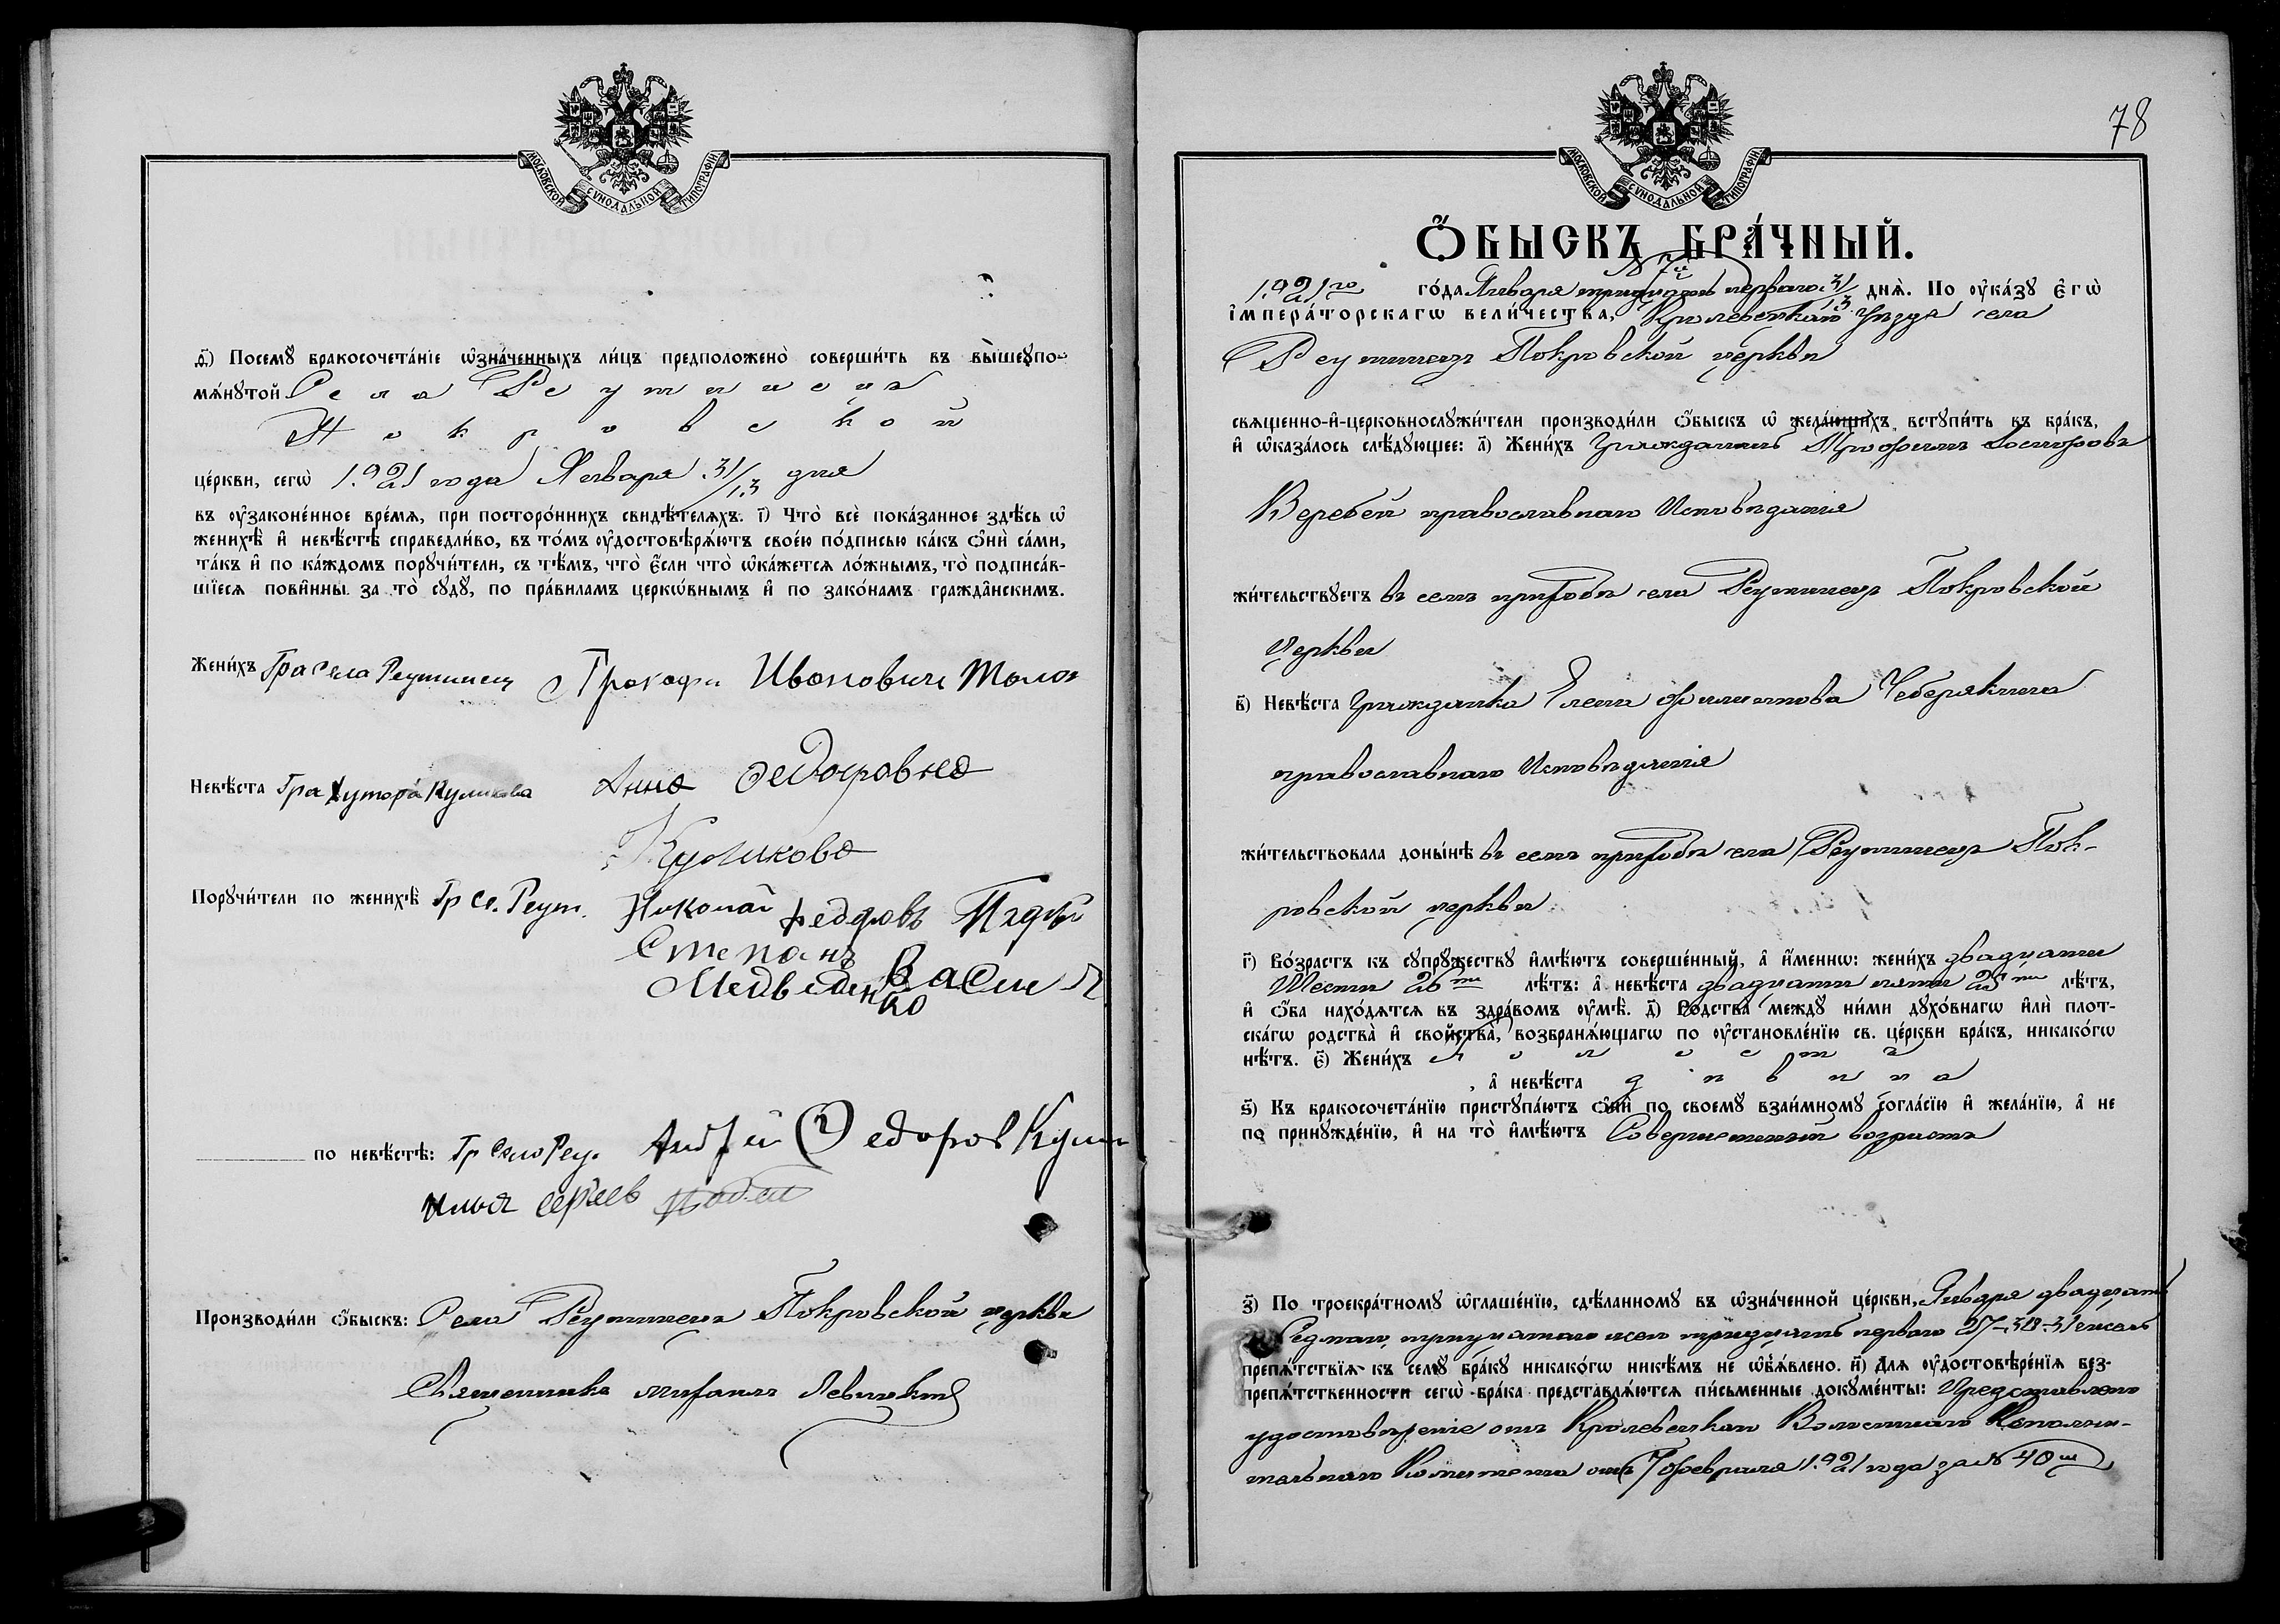 МОСКОВСКОЙ СУНОДАЛЬНОЙ ТИПОГРАФІИ.
д҃) Посемꙋ̀ бракосочета́нїе ѡ҆зна́ченныхъ ли́цъ предположенò соверши́ть въ вы́шеꙋпо-
мѧ́нꙋтой Села Реутинецъ
Покровской
це́ркви, сегѡ̀ 1921 года Января 31/13 дня
въ ᲂу҆законе́нное вре́мѧ, при посторо́ннихъ свидѣ́телѧхъ. і҃) Чтò всѐ пока́занное здѣ́сь ѡ҆
женихѣ̀ и҆ невѣ́стѣ справедли́во, въ то́мъ ᲂу҆достовѣрѧ́ютъ свое́ю по́дписью ка́къ ѻ҆нѝ са́ми,
та́къ и҆ по ка́ждомъ порꙋчи́тели, съ тѣ́мъ, чтò є҆́сли чтò ѡ҆ка́жетсѧ ло́жнымъ, тò подписа́в-
шїесѧ пови́нны за тò сꙋдꙋ̀, по пра́виламъ церкѡ́внымъ и҆ по зако́намъ гражда̂нскимъ.
Жени́хъ Гра Села Реутинец Прокофи Иванович
Невѣ́ста Гра Хутора Куликова Анна Федоровна
Куликова
Порꙋчи́тели по женихѣ̀ Гр Се. Реут. Николай Федоровъ
Степанъ
Медведенко Васил
по невѣ́стѣ: Гр Село Реу. Андрей Федоров Кули
Илья Сергеев
Производи́ли ѻ҆́быскъ: Села Реутинецъ Покровской церкви
Священникъ Михаилъ Левицкій
78
МОСКОВСКОЙ СУНОДАЛЬНОЙ ТИПОГРАФІИ.
Ѻ҆́БЫСКЪ БРА́ЧНЫЙ.
№ 7й
1921го го́да Января тридцать первого 31/13 днѧ̀. По ᲂу҆ка́зꙋ є҆гѡ̀
і҆мпера́торскагѡ вели́чества, Кролевецкаго Уѣзда села
Реутинецъ Покровской церкви
свѧщенно-и҆-церковнослꙋжи́тели производи́ли ѻ҆́быскъ ѡ҆ жела́ющихъ вступи́ть въ бра́къ,
и҆ ѡ҆каза́лось слѣ́дꙋющее: а҃) Жени́хъ Гражданинъ Трофимъ
Веребей православнаго Исповѣданія
жи́тельствꙋетъ въ семъ приходѣ села Реутинецъ Покровской
церкви
в҃) Невѣ́ста Гражданка Елена Филиппова Чеберякина
православнаго Исповѣданія
жи́тельствовала доны́нѣ въ семъ приходѣ села Реутинецъ Пок-
ровской церкви
г҃) Во́зрастъ къ сꙋпрꙋ́жествꙋ и҆мѣ́ютъ соверше́нный, а҆ и҆́меннѡ: жени́хъ двадцати
Шести 26ти лѣ́тъ: а҆ невѣ́ста двадцати пяти 25ти лѣ́тъ,
и҆ ѻ҆́ба нахо́дѧтсѧ въ здра́вомъ ᲂу҆мѣ̀. д҃) Родства̀ междꙋ̀ ни́ми дꙋхо́внагѡ и҆лѝ плот-
ска́гѡ родства̀ и҆ свойства̀, возбранѧ́ющагѡ по ᲂу҆становле́нїю св. це́ркви бра́къ, никако́гѡ
нѣ́тъ. є҃) Жени́хъ холостъ
, а҆ невѣ́ста дѣвица
ѕ҃) Къ бракосочета́нїю пристꙋпа́ютъ ѻ҆нѝ по своемꙋ̀ взаи́мномꙋ согла́сїю и҆ жела́нїю, а҆ не
по принꙋжде́нїю, и҆ на тò и҆мѣ́ютъ Совершенный возрастъ
з҃) По троекра́тномꙋ ѡ҆глаше́нїю, сдѣ́ланномꙋ въ ѡ҆зна́ченной це́ркви, Января двадцать
Седмаго, тридцатаго и тридцать перваго 27-30-31 числъ
препѧ́тствїѧ къ семꙋ̀ бра́кꙋ никако́гѡ никѣ́мъ не ѡ҆б̾ѧ́влено. и҃) Длѧ ᲂу҆достовѣре́нїѧ без-
препѧ́тственности сегѡ̀ бра́ка представлѧ́ютсѧ пи́сьменные докꙋме́нты: Представлено
удостовѣреніе отъ Кролевецкаго Волостнаго Исполни-
тельнаго Комитета отъ 7 февраля 1921 года за № 40ш